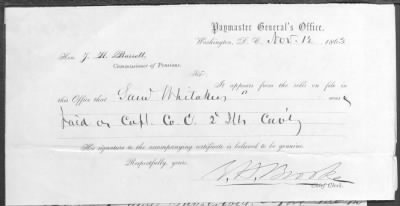 Paymaster General's Office,
Washington, D. C. Nov. 12, 1863
Hon. J. H. Barrett,
Commissioner of Pensions.
Sir:
It appears from the rolls on file in
this Office that Saml Whitaker was
paid as Capt. Co. C. 2d Ills Cavly
His signature to the accompanying certificate is believed to be genuine.
Respectfully, yours,
Brooke
Chief Clerk.